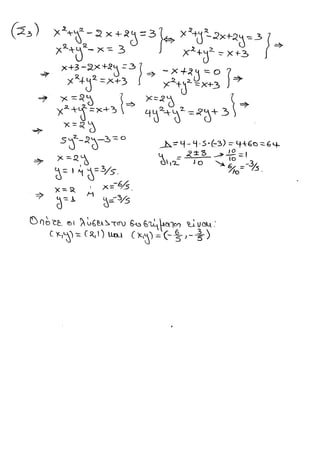 (Σ₃) x²+y²-2x+2y=3 } ⇔ x²+y²-2x+2y=3 } ⇒
x²+y²-x=3 x²+y²=x+3
⇒ x+3-2x+2y=3 } ⇒ -x+2y=0 } ⇒
x²+y²=x+3 x²+y²=x+3
⇒ x=2y } ⇒ x=2y } ⇒
x²+y²=x+3 4y²+y²=2y+3
⇒ x=2y
5y²-2y-3=0 Δ=4-4·5·(-3)=4+60=64
⇒ x=2y y₁,₂= 2±8/10 → 10/10=1
y=1 ή y=-3/5 → -6/10=-3/5
⇒ x=2 ή x=-6/5
y=1 y=-3/5
Οπότε οι λύσεις του συστήματος είναι:
(x,y)=(2,1) και (x,y)=(-6/5,-3/5)